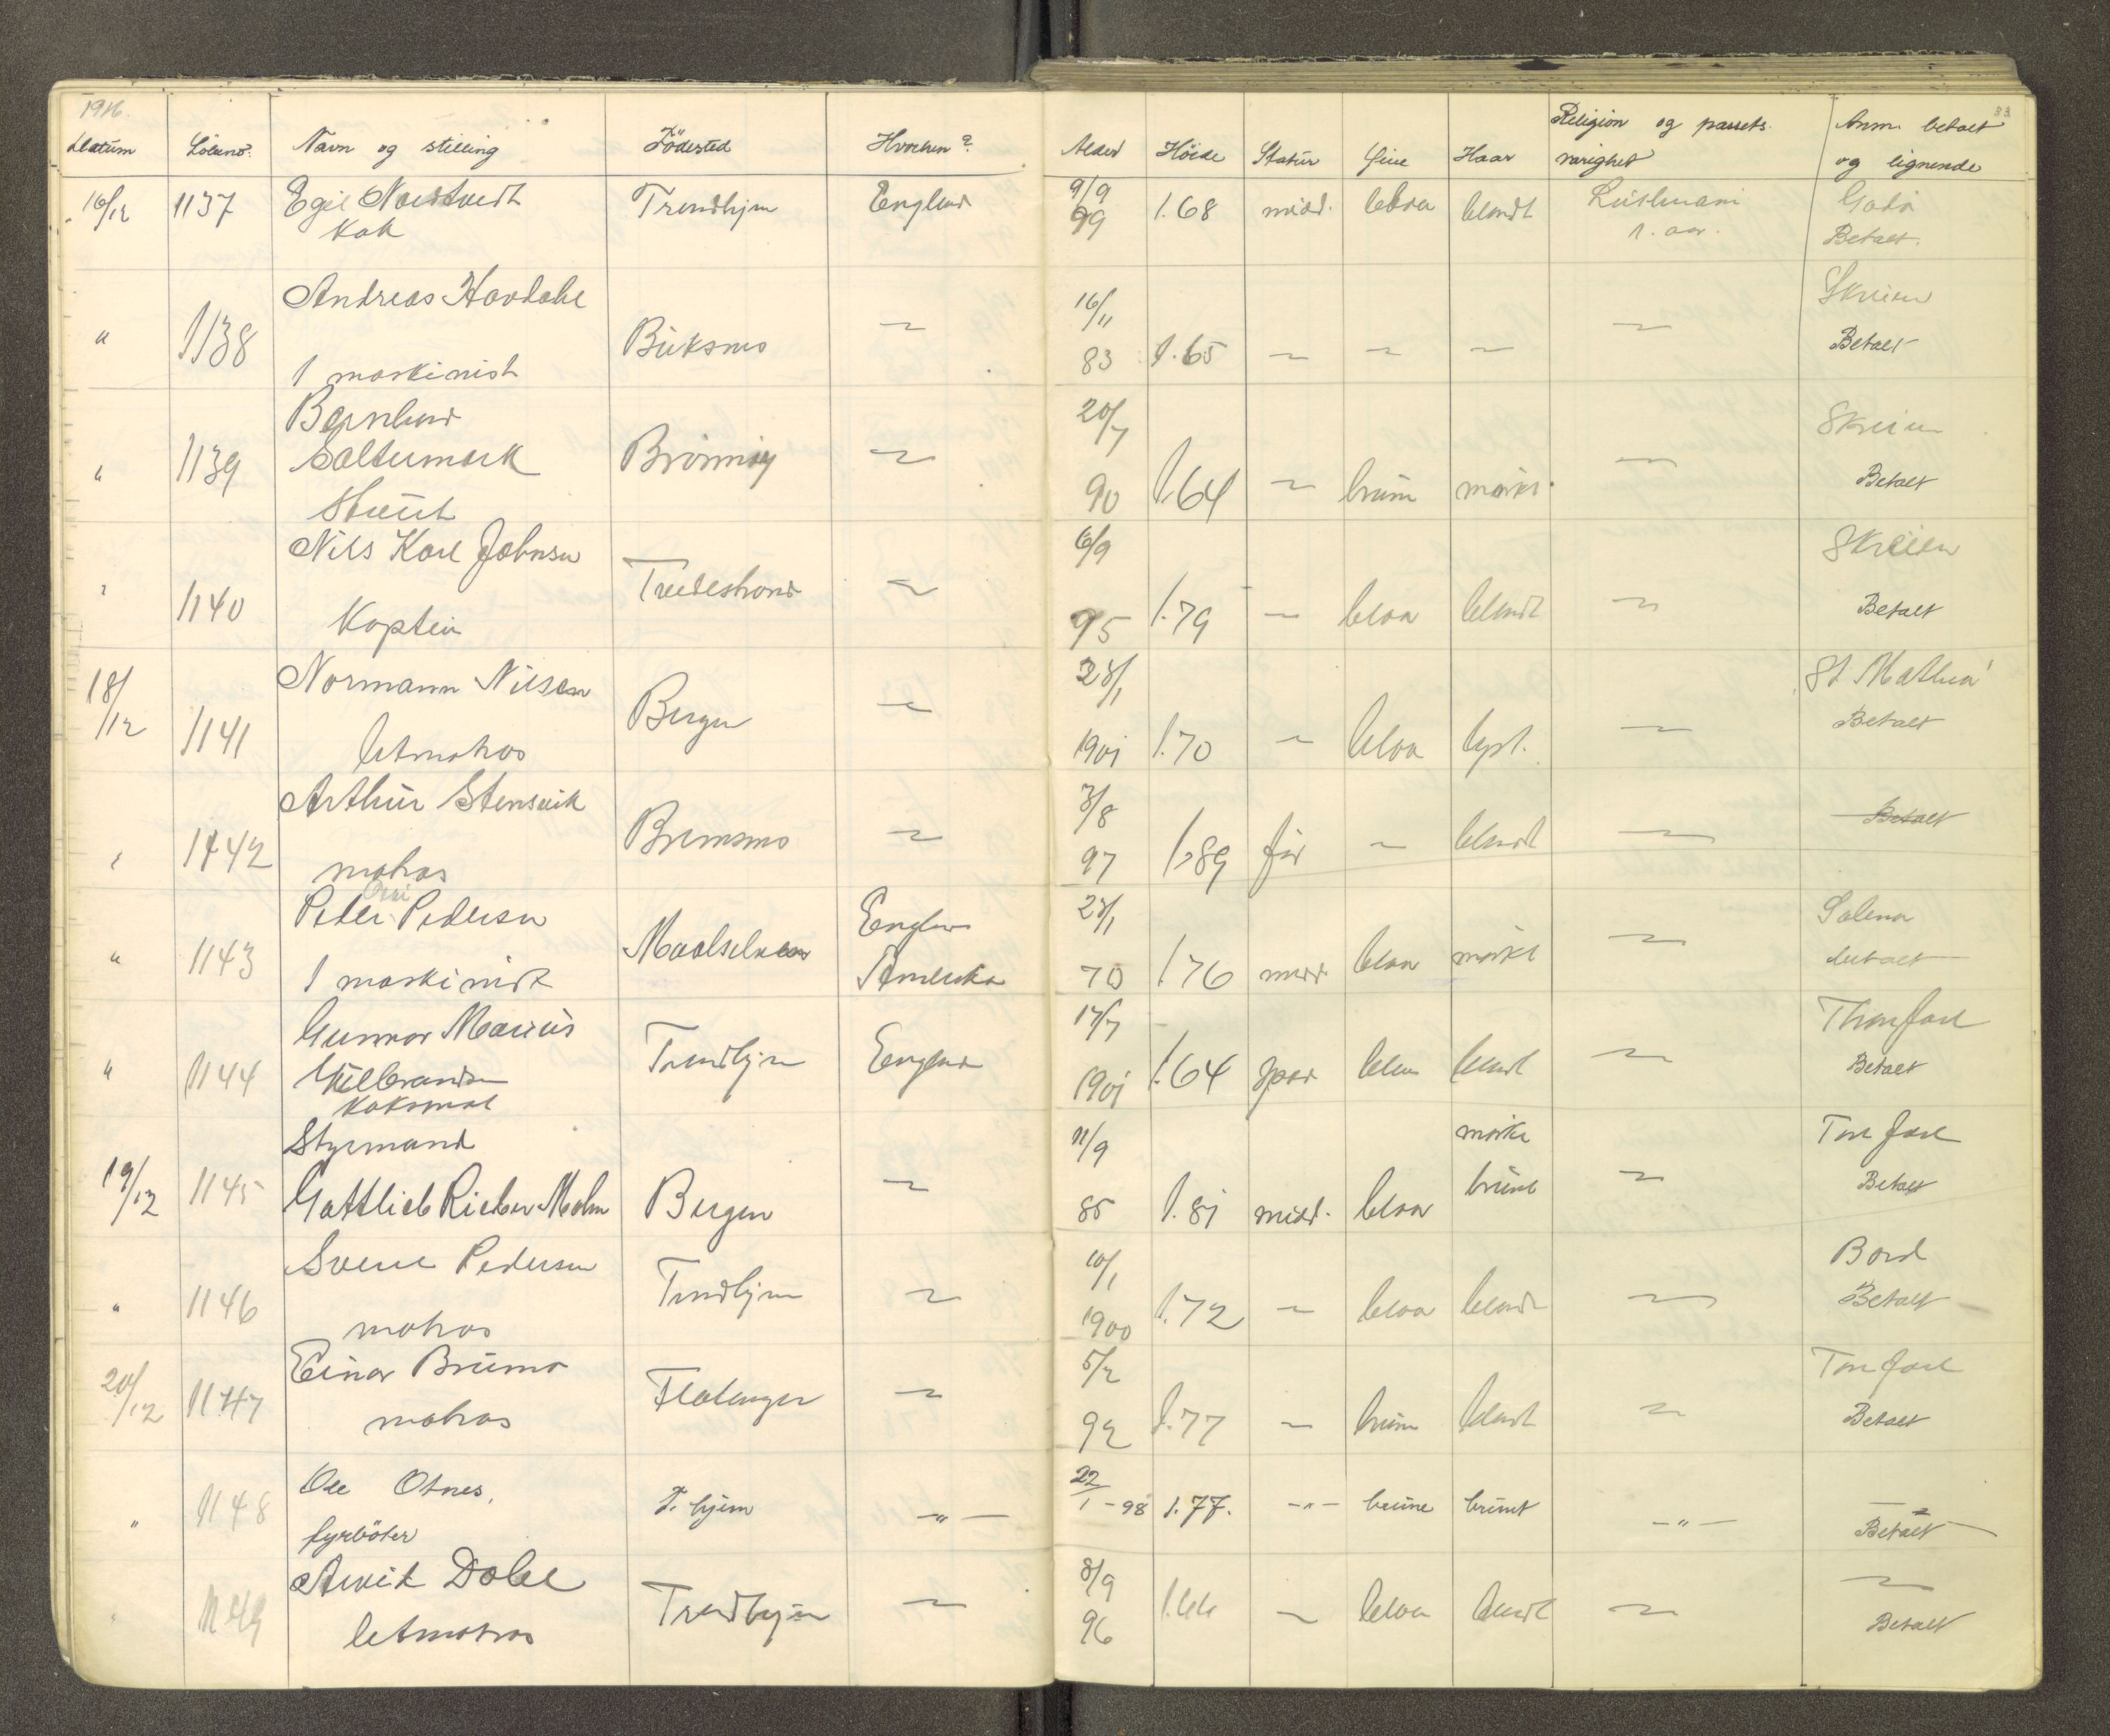 1916. 33
Datum Löbeno. Navn og stilling Födested Hvorhen? Alder Höide Statur Öine Haar Religion og passets varighet Anm. betalt og lignende
16/12 1137 Egil Nordtvedt Trondhjem England 9/9 99 1.68 midd. blaa blondt Luthersk Goda
Kok 1. aar. Betalt.
Andreas Havdahl 16/11 Skreien
" 1138 Buksnes ~ 83 1.65 ~ ~ ~ ~ Betalt
1 maskinist
Bernhard 20/7 Skreien
" 1139 Saltermark Brönnöy ~ 90 1.64 ~ brun mörkt ~ Betalt
Stuert
Nils Karl Johnsen 6/9 Skreien
" 1140 Tvedestrand ~ 95 1.79 ~ blaa blondt ~ Betalt
Kaptein
18/12 Normann Nilsen 28/1 St Mathew
1141 Bergen ~ 1901 1.70 ~ blaa lyst. ~ Betalt
letmatros
Arthur Stensvik 3/8
" 1142 Bremsnes ~ 97 1.89 før ~ blondt ~ Betalt
matros
Peter Peder­sen England 28/1 Salena
" 1143 Maalselven Amerika 70 1.76 midd. blaa mörkt ~ betalt
1 maskinist
Gunnar Marius 17/7 Thor Jarl
" 1144 Gulbrandsen Trondhjem England 1901 1.64 spæd blaa blondt ~ Betalt
Koksmat
Styrmand 11/9 mörke Tore Jarl
19/12 1145 Gottlieb Rieber Mohn Bergen ~ 85 1.81 midd. blaa brune ~ Betalt
Sverre Pedersen 10/1 Bord
" 1146 Trondhjem ~ 1900 1.72 ~ blaa blondt ~ Betalt
matros
Einar Brumo 5/2 Tore Jarl
20/12 1147 Flatanger ~ 92 1.77 ~ brun blondt ~ Betalt
matros
Ole Otnes, 22/1-98
" 1148 T.hjem -"- 1.77. -"- brune brunt -"- Betalt
fyrböter
Arvid Dahl 8/9 ~
" 1149 Trondhjem ~ 96 1.66 ~ blaa blondt ~ Betalt
letmatros